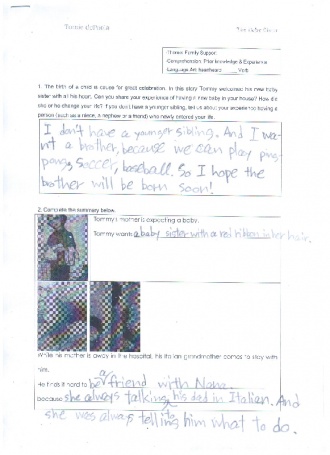 Tomie dePaola
Theme: Family Support
Comprehension: Prior knowledge & Experience
Language Arts: Verb
1. The birth of a child is cause for great celebration. In this story Tommy welcomed his new baby
sister with all his heart. Can you share your experience of having a new baby in your house? How did
she or he change your life? If you don't have a younger sibling, tell us about your experience having a
person (such as a niece, a nephew or a friend) who newly entered your life.
I don't have a younger sibling. And I wa-
nt a brother, because we can play ping
pong, soccer, baseball. So I hope the
brother will be born soon!
2. Complete the summary below.
Tommy's mother is expecting a baby.
Tommy wants a baby sister with a red ribbon in her hair.
While his mother is away in the hospital, his Italian grandmother comes to stay with
him.
He finds it hard to be a friend with Nana.
because she always talking his dad in Italian. And
she was always telling him what to do.